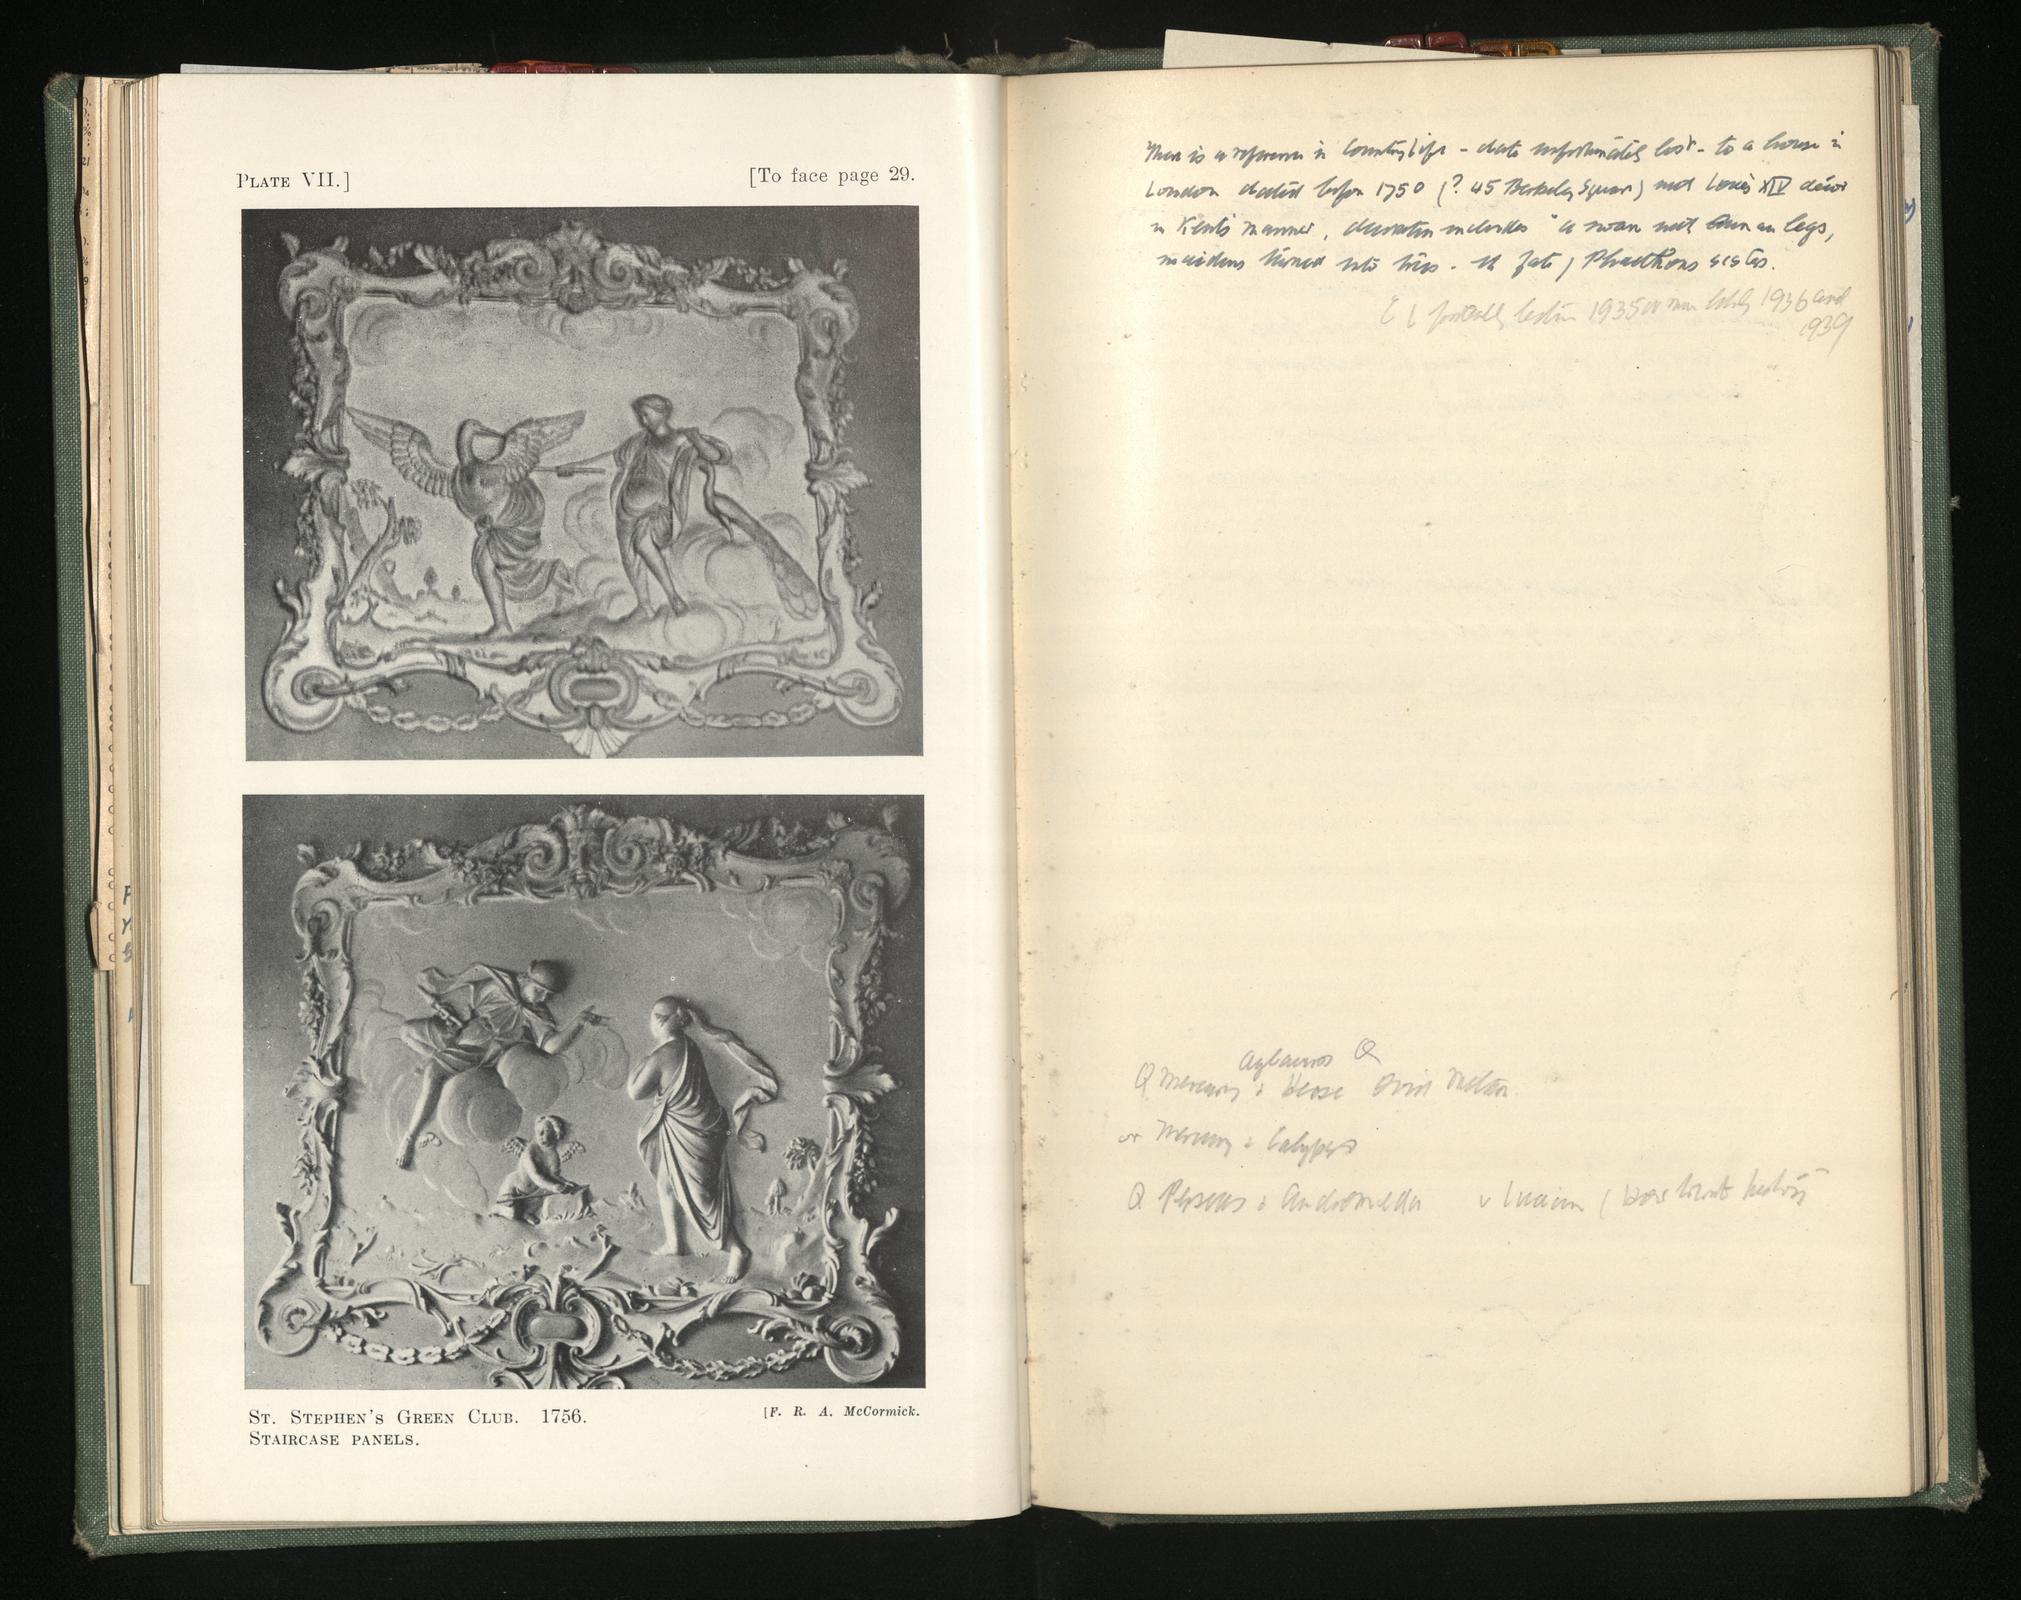 PLATE VII.]
[To face page 29.
ST. STEPHEN'S GREEN CLUB. 1756.
[F. R. A. McCormick.
STAIRCASE PANELS.
There is a reference in Country Life - date unfortunately lost - to a house in
London dated before 1750 (? 45 Berkeley Square) Louis XIV décor
in Kent's manner, decoration includes "a swan human legs,
maidens turned into trees - Phaethons sisters.
1935 or 1936 and
1939
Aglauros Q
Q Mercury & Herse Ovid Metam.
or Mercury & Calypso
Q Perseus & Andromeda v Lucian